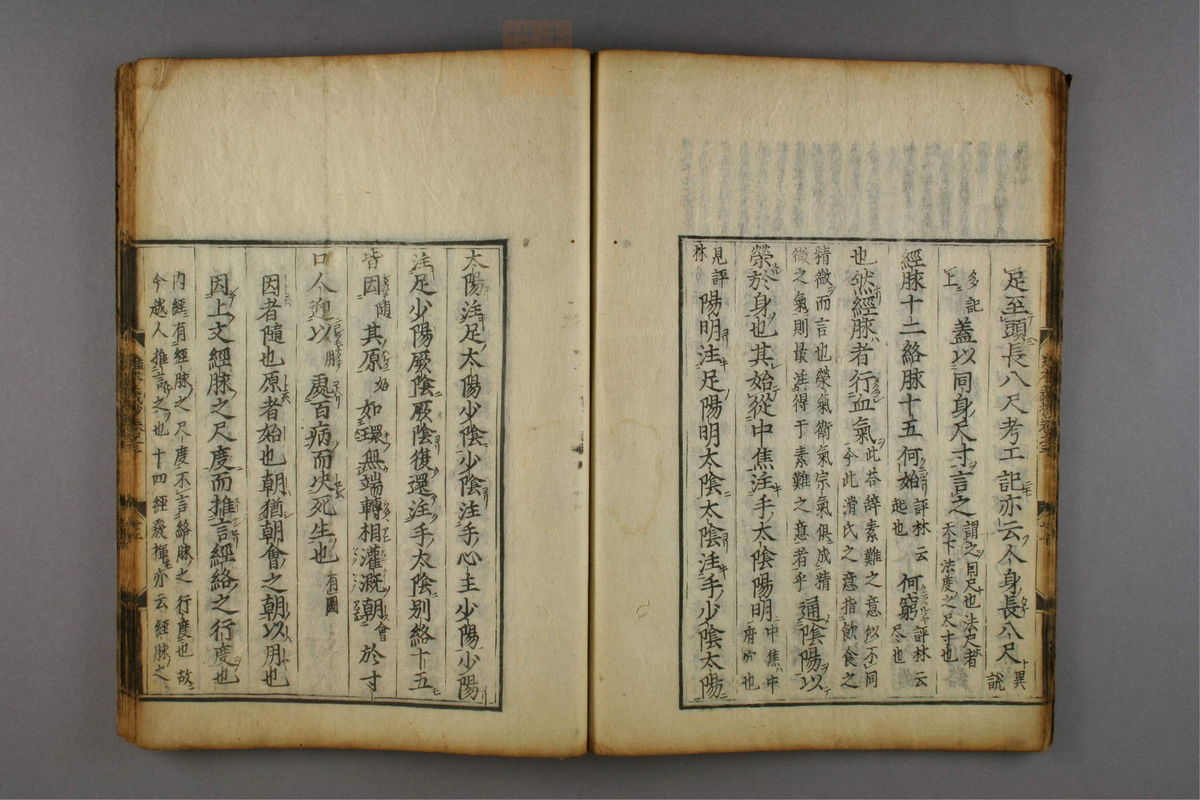 足至頭長八尺考工記亦云人身長八尺異説
多記上蓋以同身尺寸言之謂之同尺也法尺者天下法度之尺寸也
經脉十二絡脉十五何始評林云起也何窮評林云尽也
也然經脉者行血氣此荅辞素難之意似不同今此滑氏之意指飲食之
精微而言也榮氣衛氣宗氣俱成精微之氣則最注得于素難之意者乎通陰陽以
榮於身也其始從中焦注手太陰陽明中焦中府穴也
見評林陽明注足陽明太陰太陰注手少陰太陽
太陽注足太陽少陰少陰注手心主少陽少陽
注足少陽厥陰厥陰復還注手太陰別絡十五
皆因隨其原始如環無端轉相灌漑朝會於寸
口人迎以處百病而决死生也有圖
因者隨也原者始也朝猶朝會之朝以用也
因上文經脉之尺度而推言經絡之行度也
内經有經脉之尺度不言絡脉之行度也故今越人推言之也十四經發揮亦云經脉之